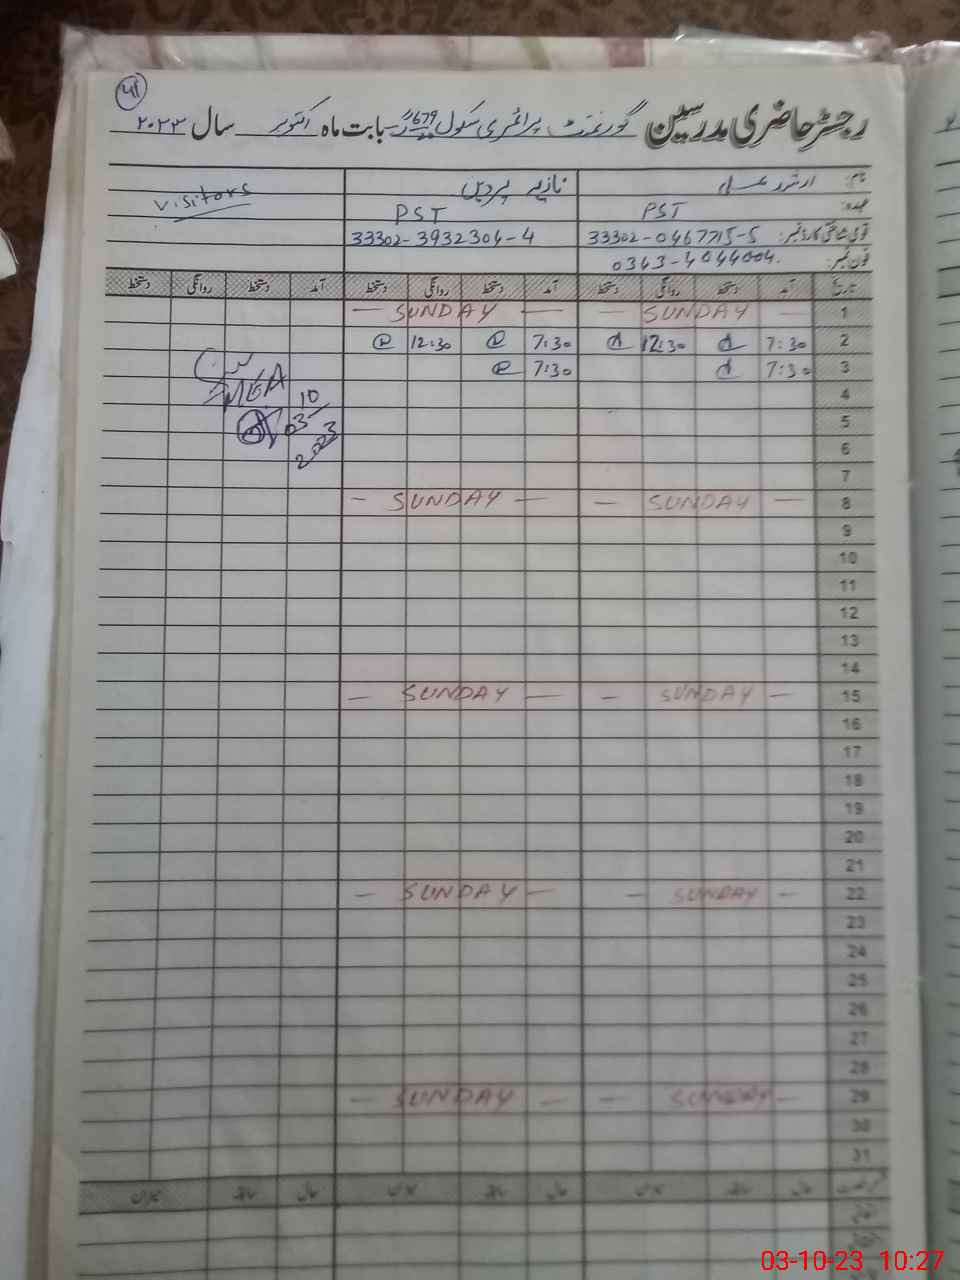 رجسٹر حاضری مدرسین گورنمنٹ پرائمری سکول 679 بابت ماہ اکتوبر سال ۲۰۲۳
نام: ارشد علی نازیہ پروین Visitors
عہدہ: PST PST
قومی شناختی کارڈ نمبر: 33302-0467715-5 33302-3932304-4
فون نمبر: 0343-4044004.
تاریخ آمد دستخط روانگی دستخط آمد دستخط روانگی دستخط آمد دستخط روانگی دستخط
1 — SUNDAY — — SUNDAY —
2 7:30 12:30 7:30 12:30
3 7:30 7:30
MEA
4 10
5 03-
6 2023
7
8 — SUNDAY — — SUNDAY —
9
10
11
12
13
14
15 — SUNDAY — — SUNDAY —
16
17
18
19
20
21
22 — SUNDAY — — SUNDAY —
23
24
25
26
27
28
29 — SUNDAY — — SUNDAY —
30
31
حال سابقہ میزان حال سابقہ میزان حال سابقہ میزان
03-10-23 10:27